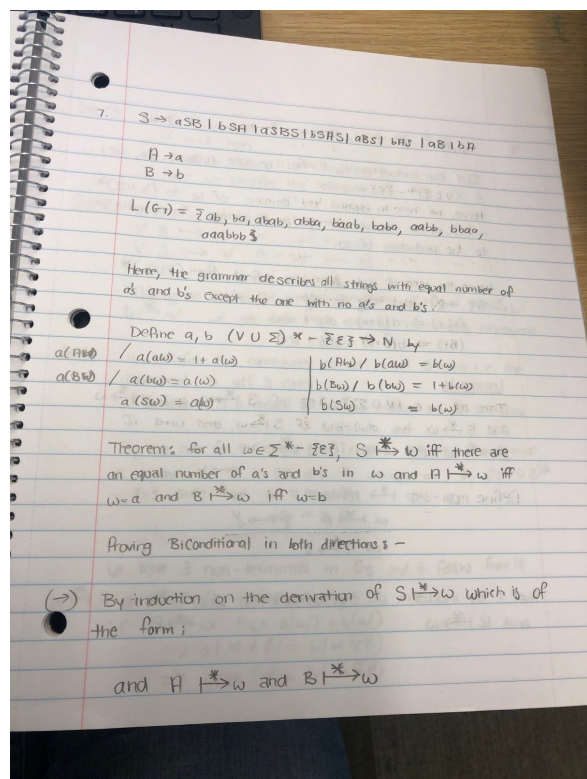 7. S → aSB | bSA | aSBS | bSAS | aBS | bAS | aB | bA
A → a
B → b
L (G7) = {ab, ba, abab, abba, baab, baba, aabb, bbaa,
aaabbb}
Hence, the grammar describes all strings with equal number of
a's and b's except the one with no a's and b's.
Define a, b (V ∪ Σ)* - {ε} → N by
a(Aw) / a(aw) = 1 + a(w) | b(Aw) / b(aw) = b(w)
a(Bw) / a(bw) = a(w) | b(Bw) / b(bw) = 1+b(w)
a(Sw) = a(w) | b(Sw) = b(w)
Theorem: for all w ∈ Σ* - {ε}, S ↦* w iff there are
an equal number of a's and b's in w and A ↦* w iff
w=a and B ↦* w iff w=b
Proving BiConditional in both directions :-
(→) By induction on the derivation of S ↦* w which is of
the form;
and A ↦* w and B ↦* w